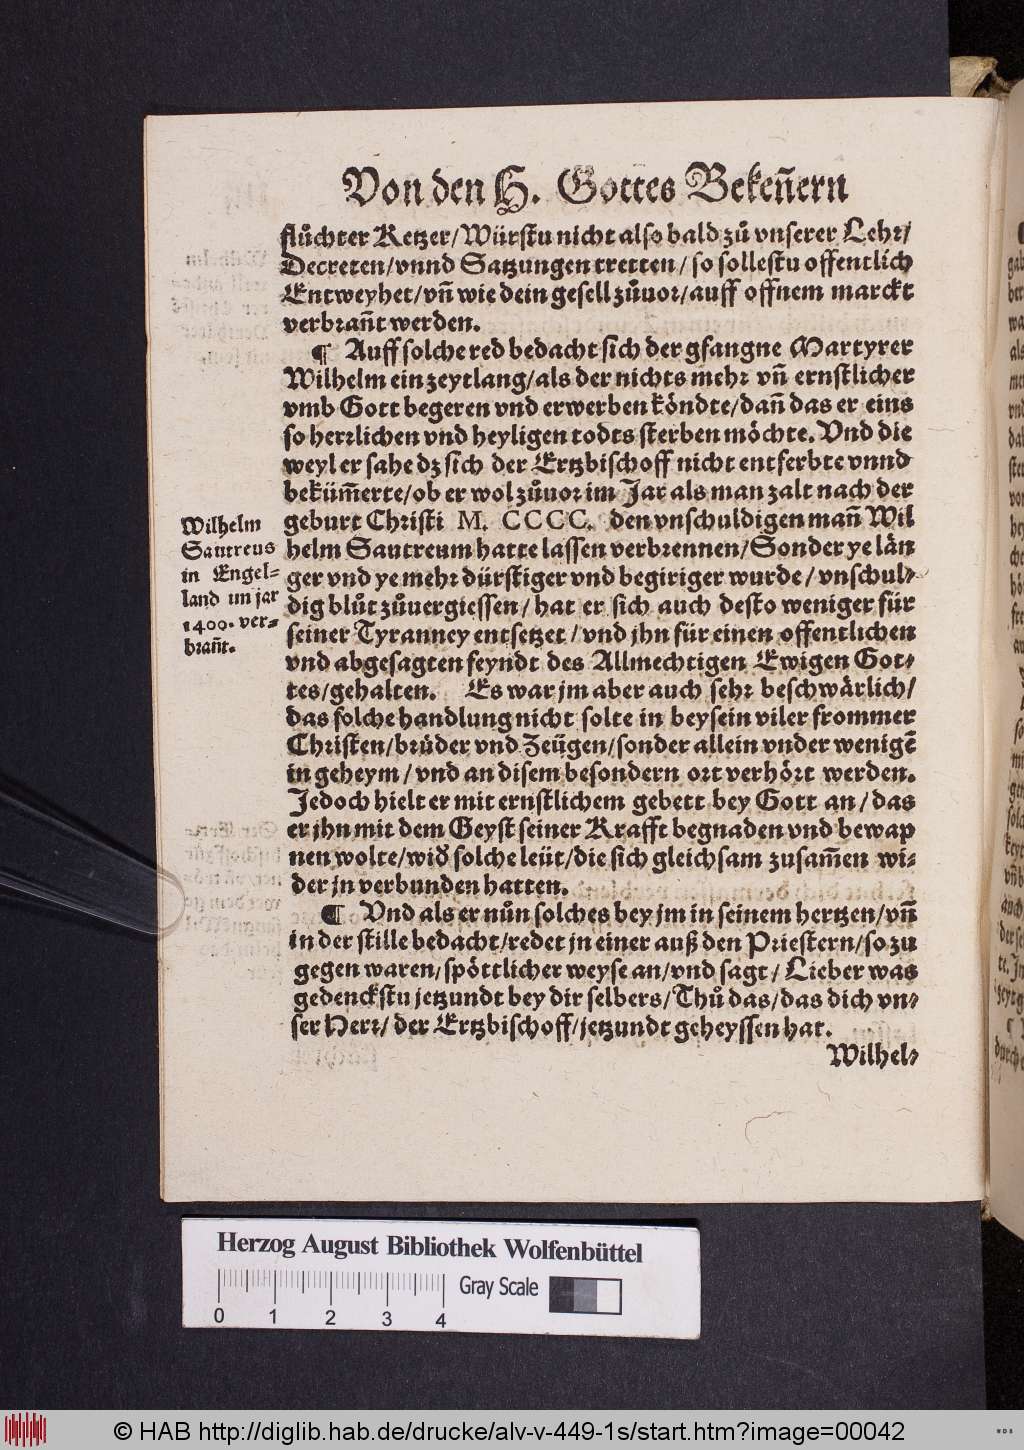 Von den H. Gottes Bekeñern
flůchter Ketzer/Würstu nicht also bald zů vnserer Lehr/
Decreten/vnnd Satzungen tretten/so sollestu offentlich
Entweyhet/vñ wie dein gesell zůuor/auff offnem marckt
verbrañt werden.
¶ Auff solche red bedacht sich der gfangne Martyrer
Wilhelm ein zeytlang/als der nichts mehr vñ ernstlicher
vmb Gott begeren vnd erwerben köndte/dañ das er eins
so herrlichen vnd heyligen todts sterben möchte. Vnd die
weyl er sahe dz sich der Ertzbischoff nicht entferbte vnnd
beküm̃erte/ob er wol zůuor im Jar als man zalt nach der
geburt Christi M. CCCC. den vnschuldigen mañ Wil
helm Sautreum hatte lassen verbrennen/Sonder ye län
ger vnd ye mehr dürstiger vnd begiriger wurde/vnschul⸗
dig blůt zůuergiessen/hat er sich auch desto weniger für
seiner Tyranney entsetzet/vnd jhn für einen offentlichen
vnd abgesagten feyndt des Allmechtigen Ewigen Got⸗
tes/gehalten. Es war jm aber auch sehr beschwärlich/
das solche handlung nicht solte in beysein viler frommer
Christen/brüder vnd Zeügen/sonder allein vnder wenigẽ
in geheym/vnd an disem besondern ort verhört werden.
Jedoch hielt er mit ernstlichem gebett bey Gott an/das
er jhn mit dem Geyst seiner Krafft begnaden vnd bewap
nen wolte/wiđ solche leüt/die sich gleichsam zusam̃en wi⸗
der jn verbunden hatten.
¶ Vnd als er nůn solches bey jm in seinem hertzen/vñ
in der stille bedacht/redet jn einer auß den Priestern/so zu
gegen waren/spöttlicher weyse an/vnd sagt/Lieber was
gedenckstu jetzundt bey dir selbers/Thů das/das dich vn⸗
ser Herr/der Ertzbischoff/jetzundt geheyssen hat.
Wilhel⸗
Wilhelm
Sautreus
in Engel⸗
land im jar
1400. ver⸗
brañt.
Herzog August Bibliothek Wolfenbüttel
Gray Scale
0 1 2 3 4
© HAB http://diglib.hab.de/drucke/alv-v-449-1s/start.htm?image=00042